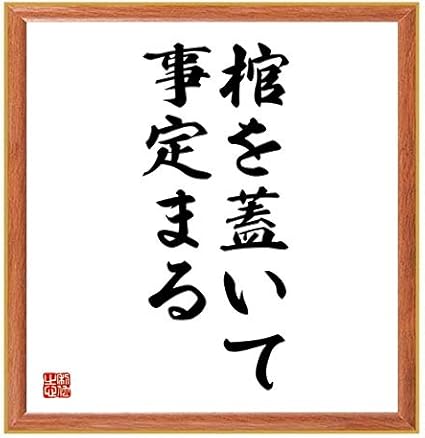 棺を蓋いて
事定まる